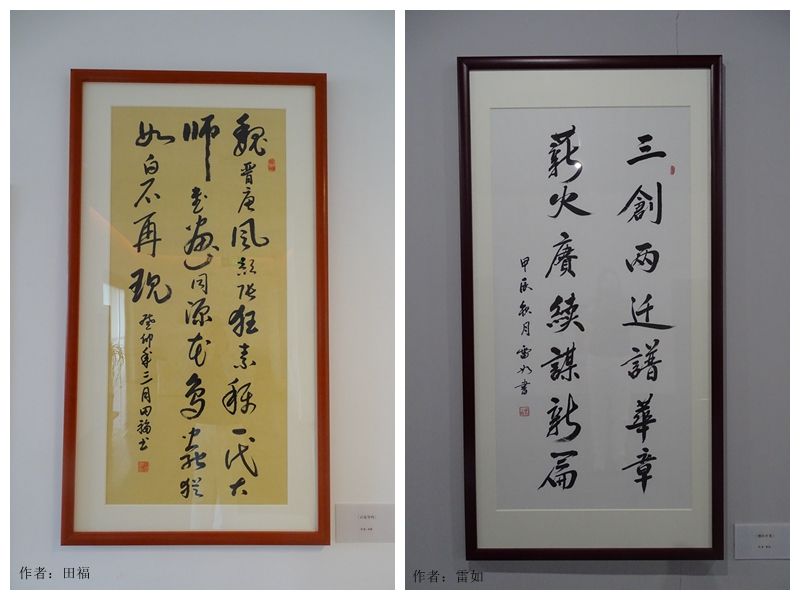 魏晋唐风颠张狂素称一代大
师书画同源花鸟虫犹
如白石再现
癸卯年三月田福书
作者：田福
三創两迁譜華章
薪火賡續謀新篇
甲辰秋月雷如書
作者：雷如